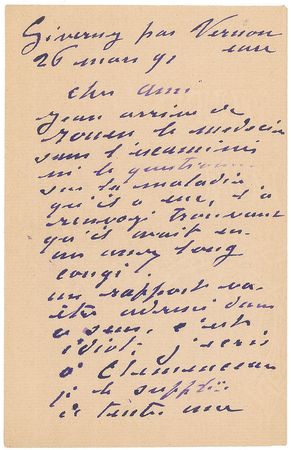 Giverny par Vernon
eure
26 mars 91
cher ami
Jean arrive de
Rouen le medecin
sans l'examiner
ni le questionner
sur la maladie
qu'il a eue, l'a
renvoyé trouvant
qu'il avait eu
un assez long
congé.
un rapport va
être adressé dans
ce sens, c'est
idiot. j'écris
à Clemenceau
je le supplie
de tenter une